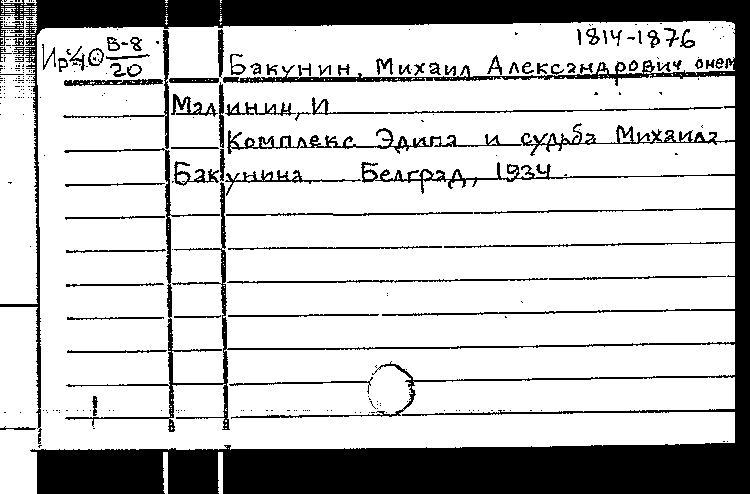 1814-1876
В-8
20
Бакунин, Михаил Александрович, о нем
Малинин, И
Комплекс Эдипа и судьба Михаила
Бакунина. Белград, 1934.